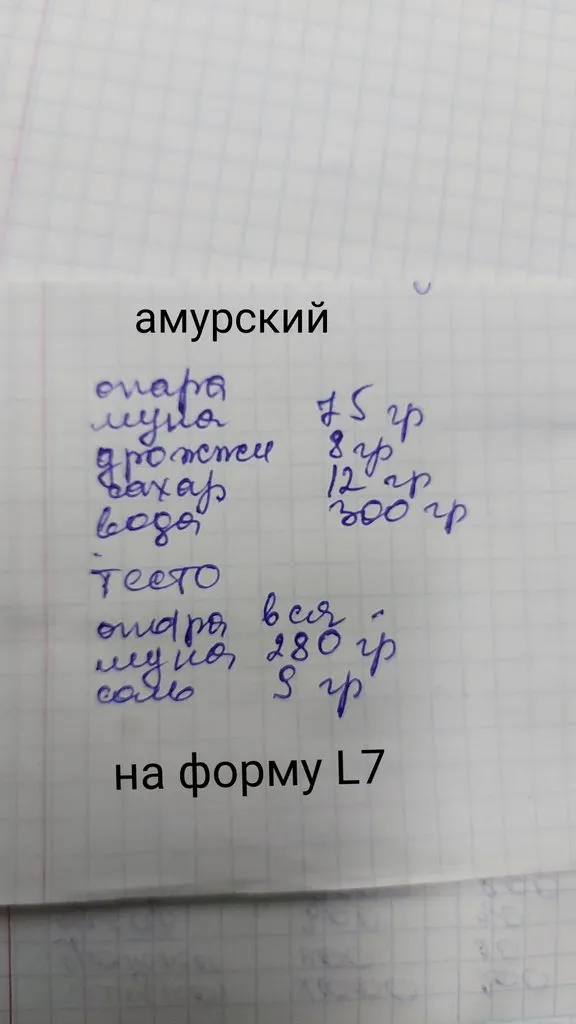 амурский
опара
мука 75 гр
дрожжи 8 гр
сахар 12 гр
вода 300 гр
тесто
опара вся
мука 280 гр
соль 9 гр
на форму L7